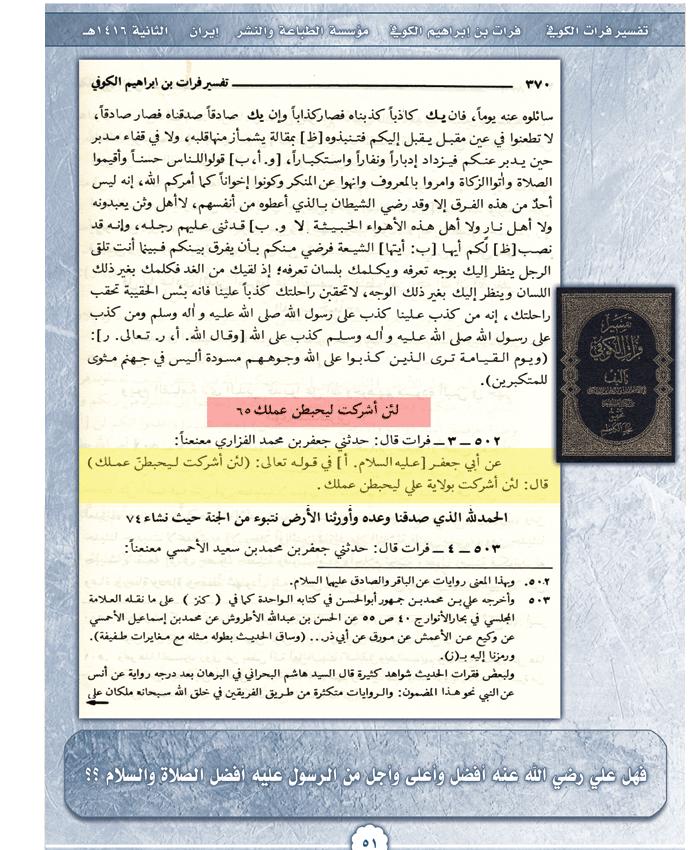 تفسير فرات الكوفي فرات بن إبراهيم الكوفي مؤسسة الطباعة والنشر إيران الثانية ١٤١٦هـ
٣٧٠ تفسير فرات بن ابراهيم الكوفي
سائلوه عنه يوماً، فان يك كاذباً كذبناه فصار كذاباً وإن يك صادقاً صدقناه فصار صادقاً،
لا تطعنوا في عين مقبل يقبل إليكم فتنبذوه [ظ] بمقالة يشمأز منها قلبه، ولا في قفاء مدبر
حين يدبر عنكم فيزداد إدباراً ونفاراً واستكباراً، [و. أ، ب] قولوا للناس حسناً وأقيموا
الصلاة وآتوا الزكاة وامروا بالمعروف وانهوا عن المنكر وكونوا إخواناً كما أمركم الله، إنه ليس
أحدٌ من هذه الفرق إلا وقد رضي الشيطان بالذي أعطوه من أنفسهم، لا أهل وثن يعبدونه
ولا أهل نار ولا أهل هذه الأهواء الخبيثة لا و. ب] قد ثنى عليهم رجله، وإنه قد
نصب [ظ] لكم أيها [ب: أيتها] الشيعة فرضي منكم بأن يفرق بينكم فبينما أنت تلق
الرجل ينظر إليك بوجه تعرفه ويكلمك بلسان تعرفه؛ إذ لقيك من الغد فكلمك بغير ذلك
اللسان وينظر إليك بغير ذلك الوجه، لا تحقبن راحلتك كذباً علينا فانه بئس الحقيبة تحقب
راحلتك، إنه من كذب علينا كذب على رسول الله صلى الله عليه و اله وسلم ومن كذب
على رسول الله صلى الله عليه و اله وسلم كذب على الله [وقال الله. أ، ر. تعالى. ر]:
(ويوم القيامة ترى الذين كذبوا على الله وجوههم مسودة أليس في جهنم مثوى
للمتكبرين).
لئن أشركت ليحبطن عملك ٦٥
٥٠٢ - ٣ - فرات قال: حدثني جعفر بن محمد الفزاري معنعناً:
عن أبي جعفر [عليه السلام. أ] في قوله تعالى: (لئن أشركت ليحبطنّ عملك)
قال: لئن أشركت بولاية علي ليحبطن عملك.
الحمدلله الذي صدقنا وعده وأورثنا الأرض نتبوء من الجنة حيث نشاء ٧٤
٥٠٣ - ٤ - فرات قال: حدثني جعفر بن محمد بن سعيد الأحمسي معنعناً:
٥٠٢. وبهذا المعنى روايات عن الباقر والصادق عليهما السلام.
٥٠٣ وأخرجه علي بن محمد بن جمهور أبوالحسن في كتابه الواحدة كما في ( كنز ) على ما نقله العلامة
المجلسي في بحار الأنوار ج ٤٠ ص ٥٥ عن الحسن بن عبدالله الأطروش عن محمد بن إسماعيل الأحمسي
عن وكيع عن الأعمش عن مورق عن أبي ذر... (وساق الحديث بطوله مثله مع مغايرات طفيفة).
ورمزنا إليه بـ(ز).
ولبعض فقرات الحديث شواهد كثيرة قال السيد هاشم البحراني في البرهان بعد درجه رواية عن أنس
عن النبي نحو هذا المضمون: والروايات متكثرة من طريق الفريقين في خلق الله سبحانه ملكان على
تفسير
فرات الكوفي
تأليف
فهل علي رضي الله عنه أفضل وأعلى وأجل من الرسول عليه أفضل الصلاة والسلام ؟؟
٥١